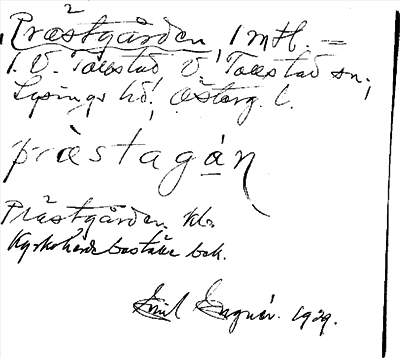 Prästgården, 1 mtl. =
1. V. Tollstad, V. Tollstad sn,
Lysings hd, Österg. l.
prästagáṇ
Prästgården. kl.
Kyrkoherdeboställe bek.
Emil Engnér. 1929.